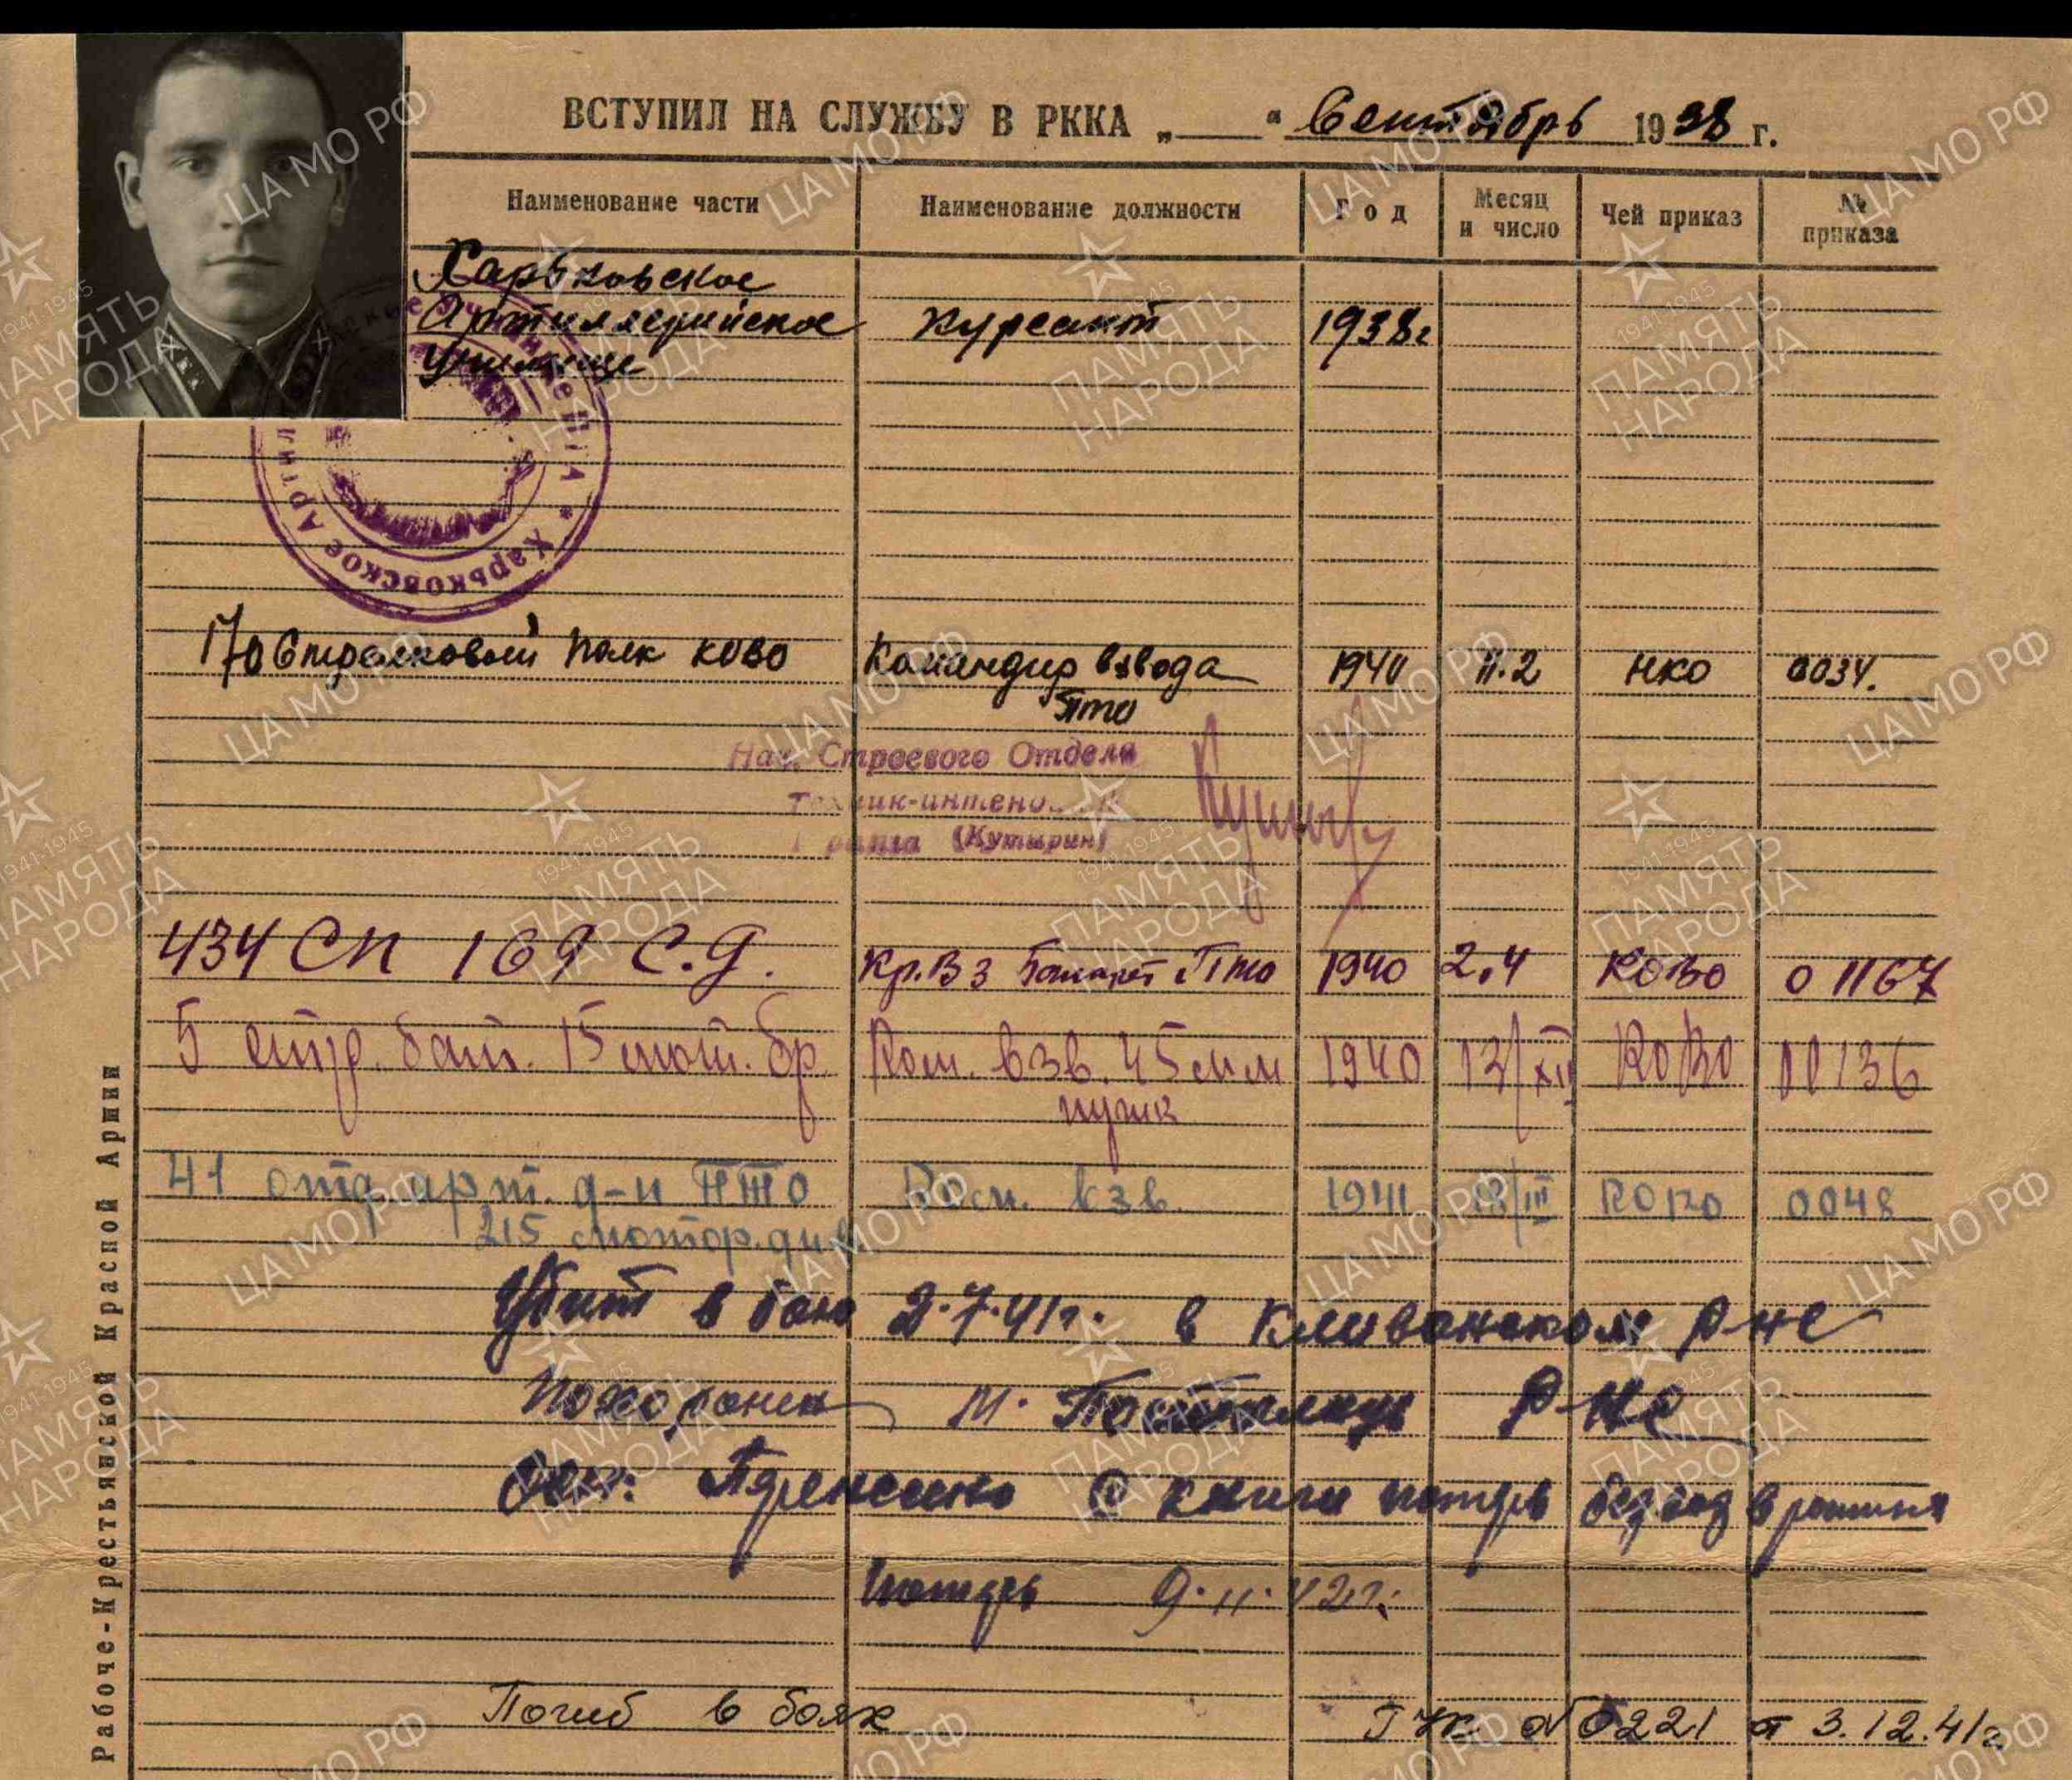 ВСТУПИЛ НА СЛУЖБУ В РККА „___“ Сентябрь 1938 г.
Наименование части Наименование должности Год Месяц и число Чей приказ № приказа
Харьковское
Артиллерийское курсант 1938г
училище
Харьковское Арт
170 Стрелковый полк КОВО Командир взвода 1940 11.2 НКО 0034.
ПТО
Нач. Строевого Отдела
Техник-интендант
ранга (Кутырин)
434 СП 169 С.Д. Кр. Вз Батареи ПТО 1940 2.4 КОВО 01167
5 стр. бат. 15 мот. бр. Ком. взв. 45 мм 1940 13/XII КОВО 00136
пушк
41 отд. арт. д-н ПТО Ком. взв. 1941 13/III КОВО 0048
215 мотор. див
Убит в бою 2.7.41г. в Клеванском р-не
Похоронен м. р-не
книги потерь
потерь 9.11.42г.
Погиб в боях ГУК №0221 от 3.12.41г.
Рабоче-Крестьянской Красной Армии
ЦА МО РФ
ПАМЯТЬ НАРОДА
1941-1945